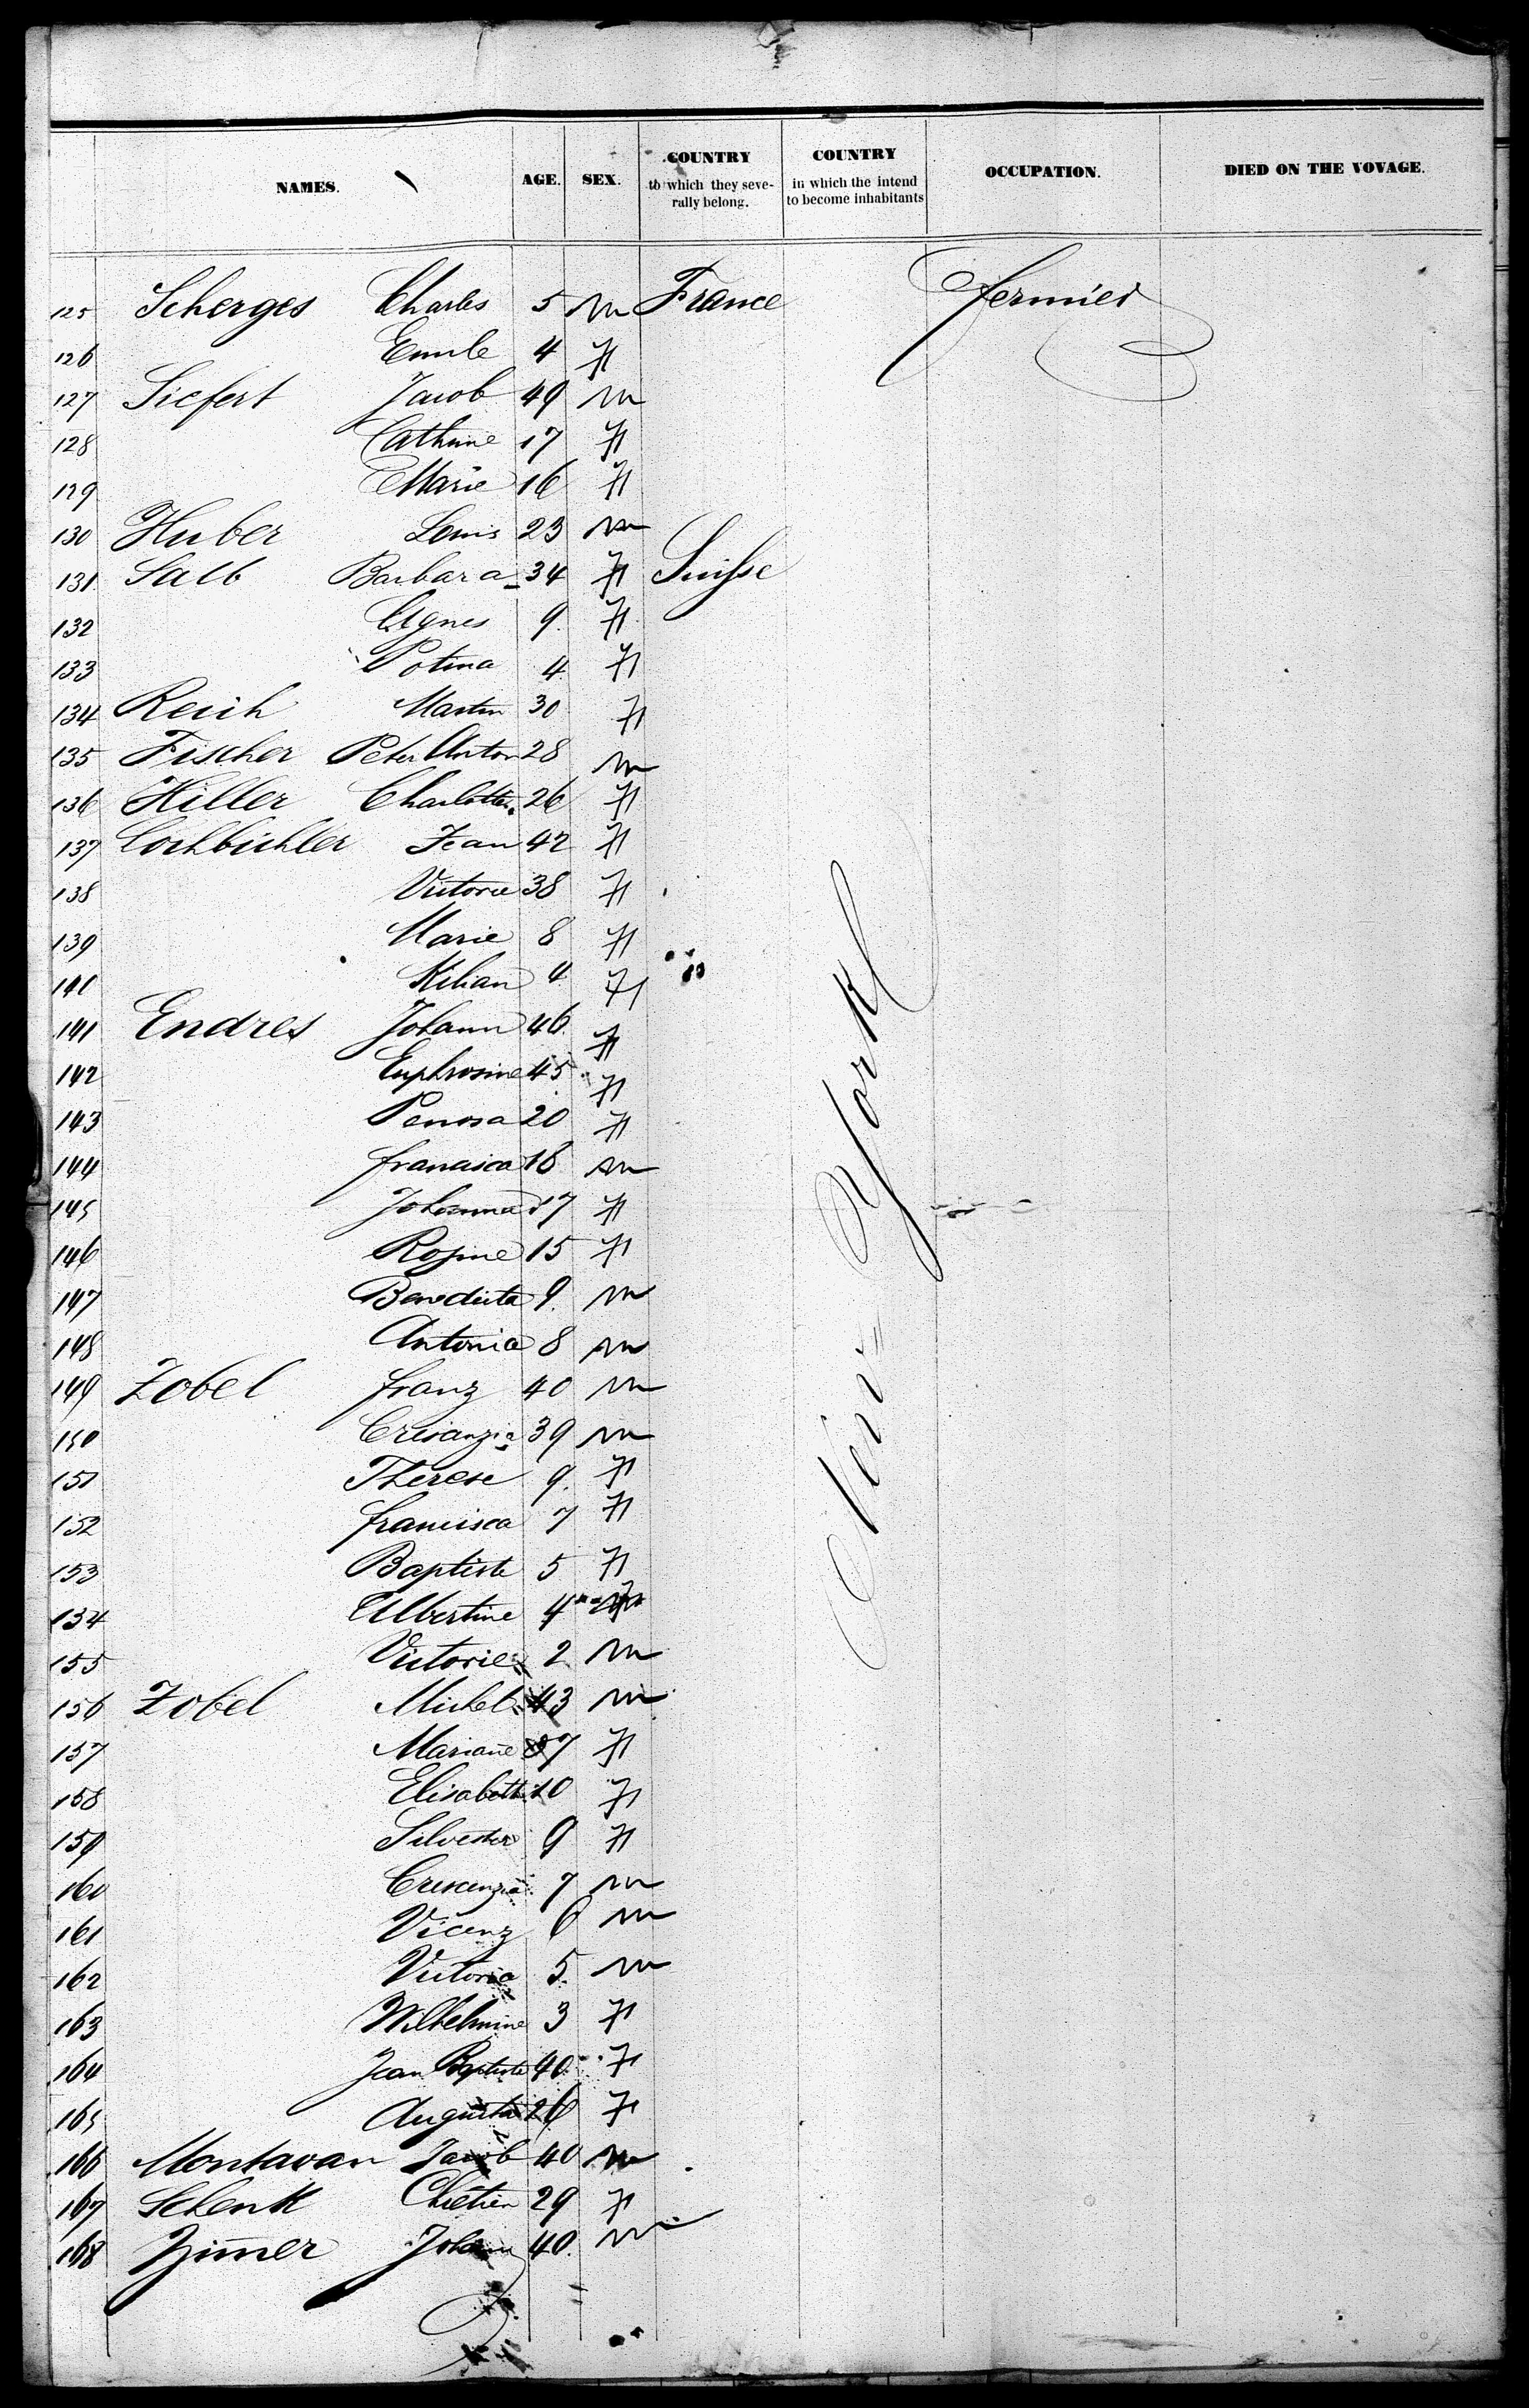 NAMES. AGE. SEX. COUNTRY to which they seve-rally belong. COUNTRY in which the intend to become inhabitants OCCUPATION. DIED ON THE VOYAGE.
125 Scherges Charles 5 m France fermier
126 Emile 4 F
127 Siefert Jacob 49 m
128 Cathrine 17 F
129 Marie 16 F
130 Huber Louis 23 m
131 Salb Barbara 34 F Suisse
132 Agnes 9 F
133 4 F
134 Reich Martin 30 F
135 Fischer Peter Anton 28 m
136 Hiller Charlotte 26 F
137 Jean 42 F
138 Victorie 38 F
139 Marie 8 F
140 Kilian 4 F
141 Endres Johann 46 F
142 Euphrosine 45 F
143 20 F
144 francisca 18 m
145 Johanna 17 F
146 Rosine 15 F
147 Benedicta 9 m
148 Antonia 8 m
149 Zobel franz 40 m
150 Cresanzia 39 m
151 Therese 9 F
152 francisca 7 F
153 Baptiste 5 F
154 Albertine 4
155 Victorie 2 m
156 Zobel Michel 43 m
157 Mariane 37 F
158 Elisabeth 10 F
159 Silvester 9 F
160 Crescenzia 7 m
161 Vicenz 6 m
162 Victoria 5 m
163 Wilhelmine 3 F
164 Jean Baptiste 40 F
165 Augusta 26 F
166 Montavan Jacob 40 m
167 Schenk Chrétien 29 F
168 Zimer Johann 40 m
New-York